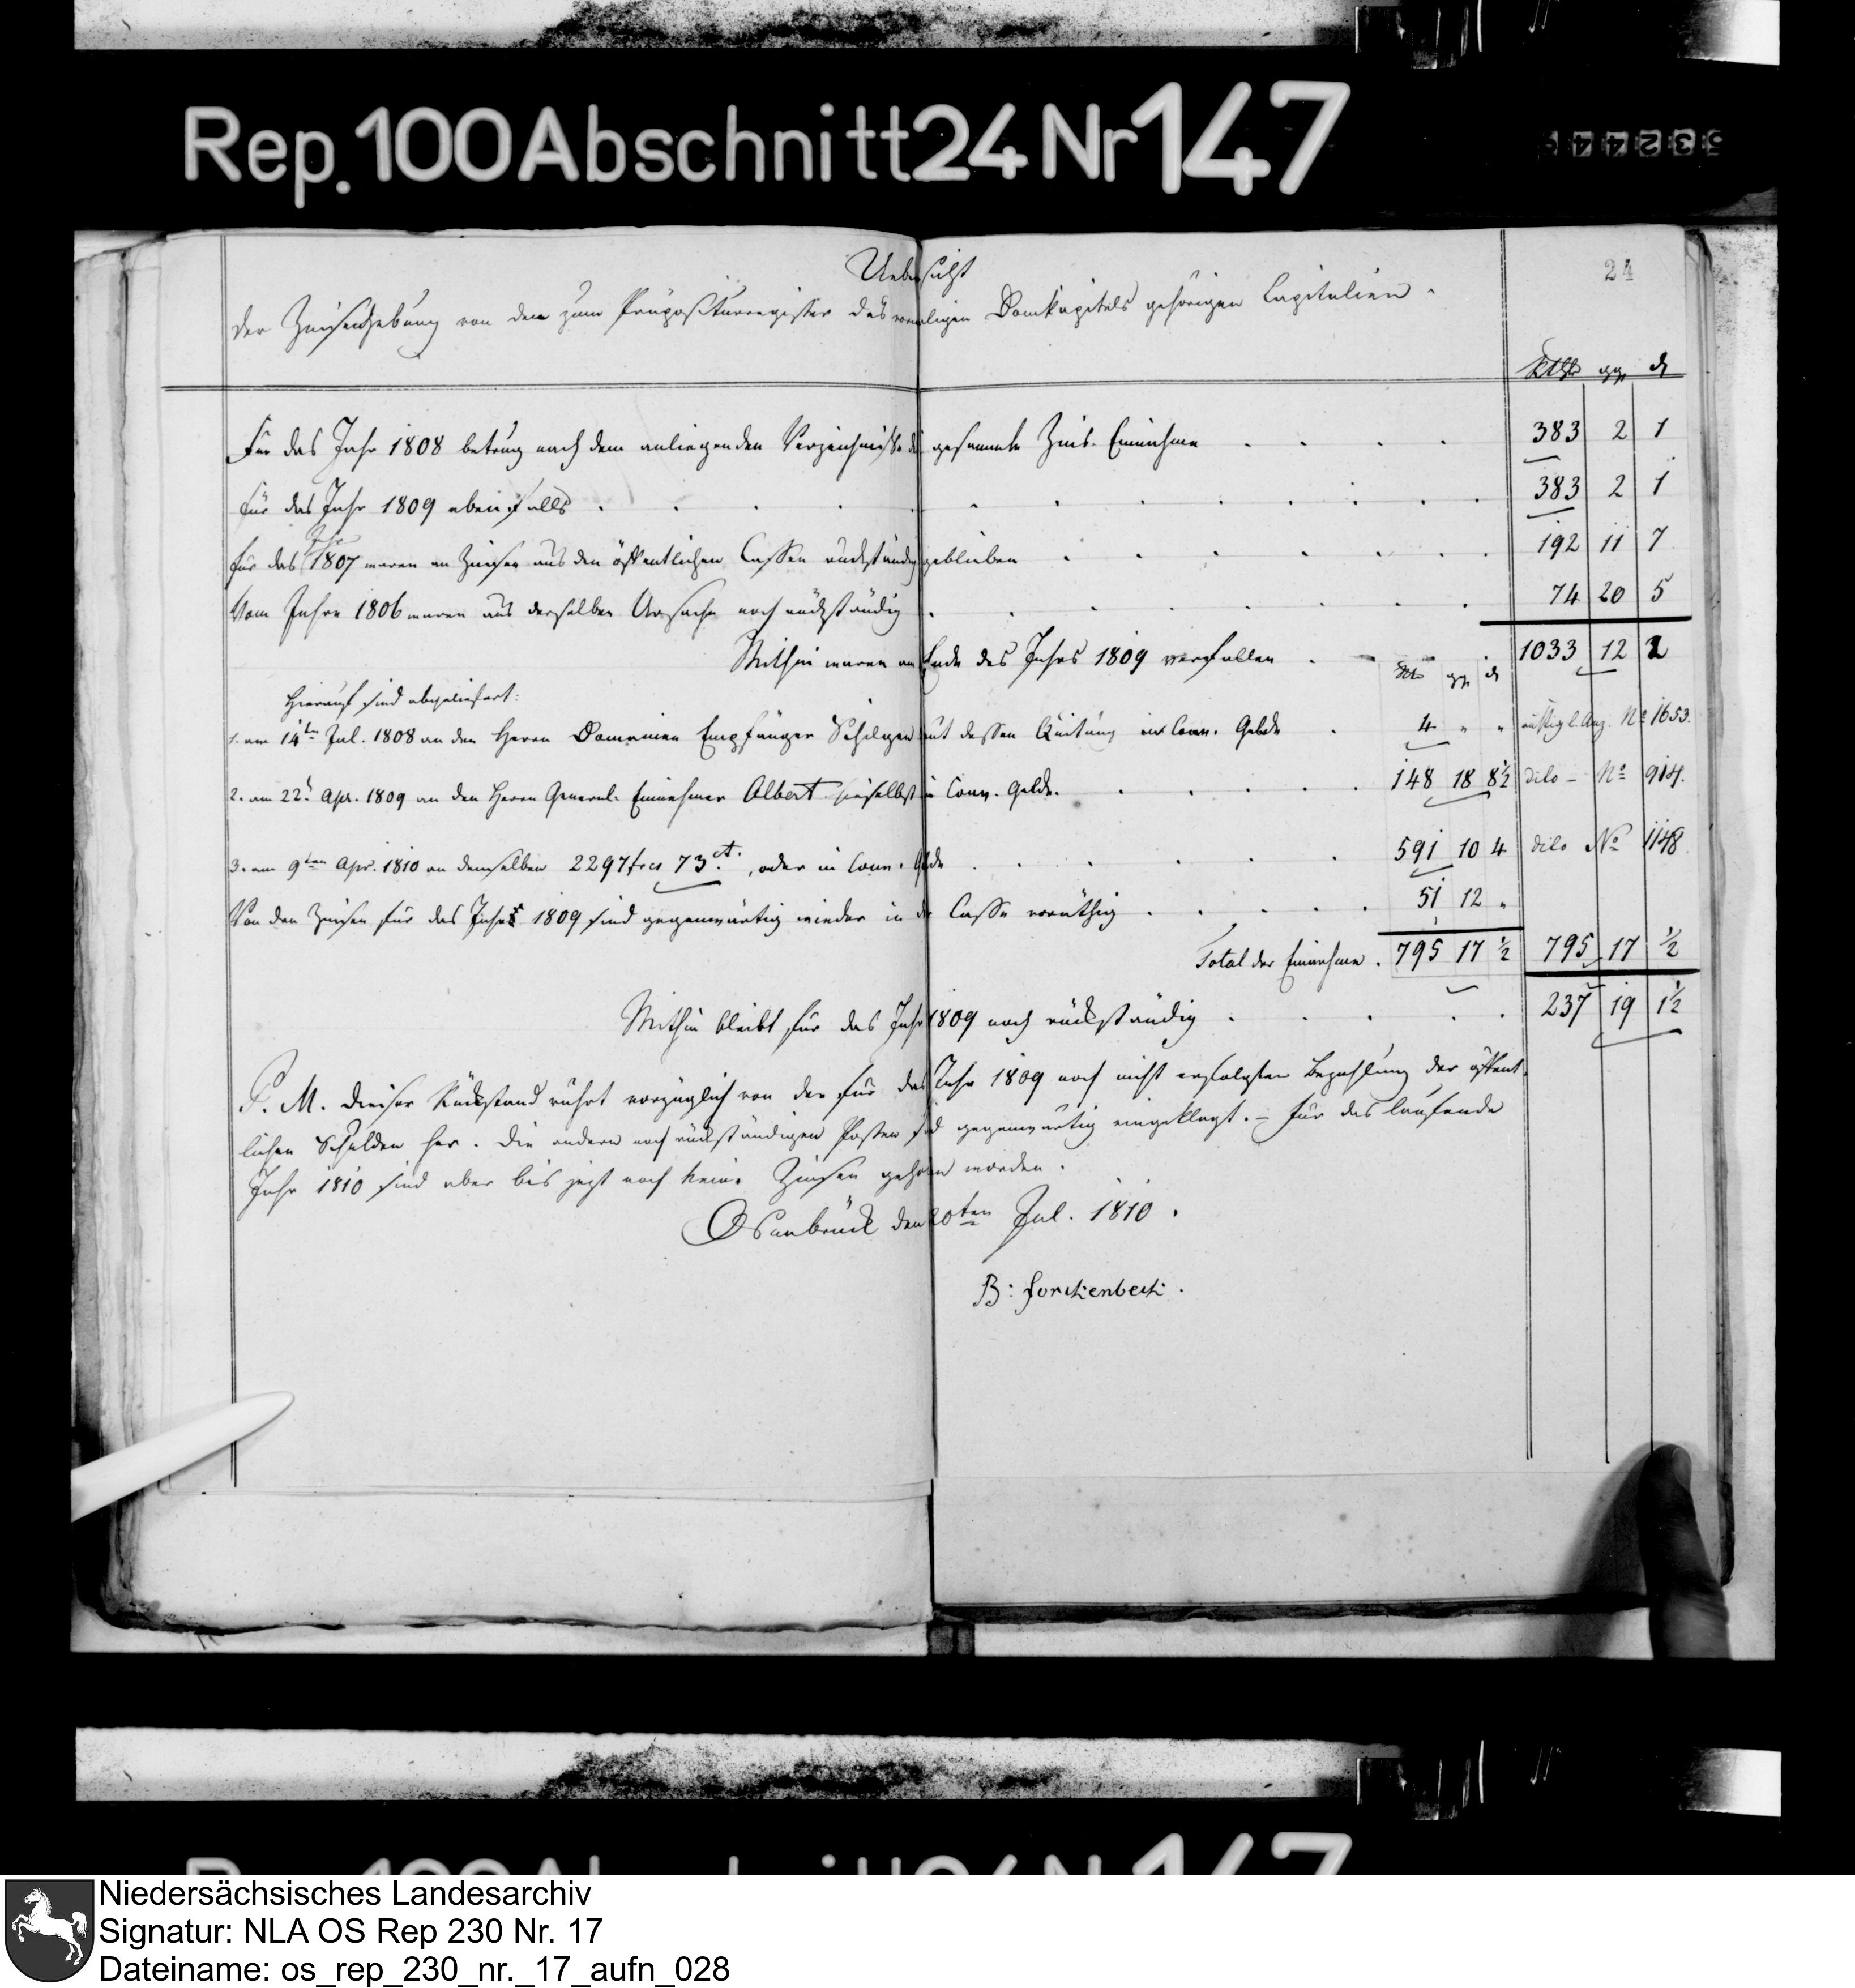 Rep. 100 Abschnitt 24 Nr 147
53244
24
Uebersicht
der Zinsenhebung von den zum Präpositurregister des vormaligen Domkapitels gehörigen Capitalien.
Rthlr ggr d
Für das Jahr 1808 betrug nach dem anliegenden Verzeichnisse die gesammte Zins-Einnahme . . . . 383 2 1
für das Jahr 1809 ebenfalls . . . . . . . . . . . . 383 2 1
für das Jahr 1807 waren an Zinsen aus den öffentlichen Cassen rückständig geblieben . . . . . . . 192 11 7
Vom Jahre 1806 waren aus derselben Ursache noch rückständig . . . . . . . . 74 20 5
Mithin waren am Ende des Jahrs 1809 verfallen . . . . 1033 12 2
Rtlr ggr d
Hierauf sind abgeliefert:
1. am 14ten Jul. 1808 an den Herrn Domainen Empfänger Schilgen laut dessen Quitung in Conv. Gelde . 4 " " No 1653.
2. am 22t Apr. 1809 an den Herrn General-Einnehmer Albert hieselbst in Conv. Gelde. . . . . . 148 18 8½ dito - No 914.
3. am 9ten Apr. 1810 an demselben 2297 frcs 73 ct., oder in Conv. Gelde . . . . . 591 10 4 dito No 1148
Von den Zinsen für das Jahr 1809 sind gegenwärtig wieder in der Casse vorräthig . . . . . 51 12 "
Total der Einnahme . 795 17 ½ 795 17 ½
Mithin bleibt für das Jahr 1809 noch rückständig . . . . . 237 19 1½
P. M. Dieser Rückstand rührt vorzüglich von der für das Jahr 1809 noch nicht erfolgten Bezahlung der öffent-
lichen Schulden her. Die andern noch rückständigen Posten sind gegenwärtig eingeklagt. – für das laufende
Jahr 1810 sind aber bis jezt noch keine Zinsen gehoben worden.
Osnabrück den 20ten Jul. 1810.
B: forckenbeck.
Niedersächsisches Landesarchiv
Signatur: NLA OS Rep 230 Nr. 17
Dateiname: os_rep_230_nr._17_aufn_028